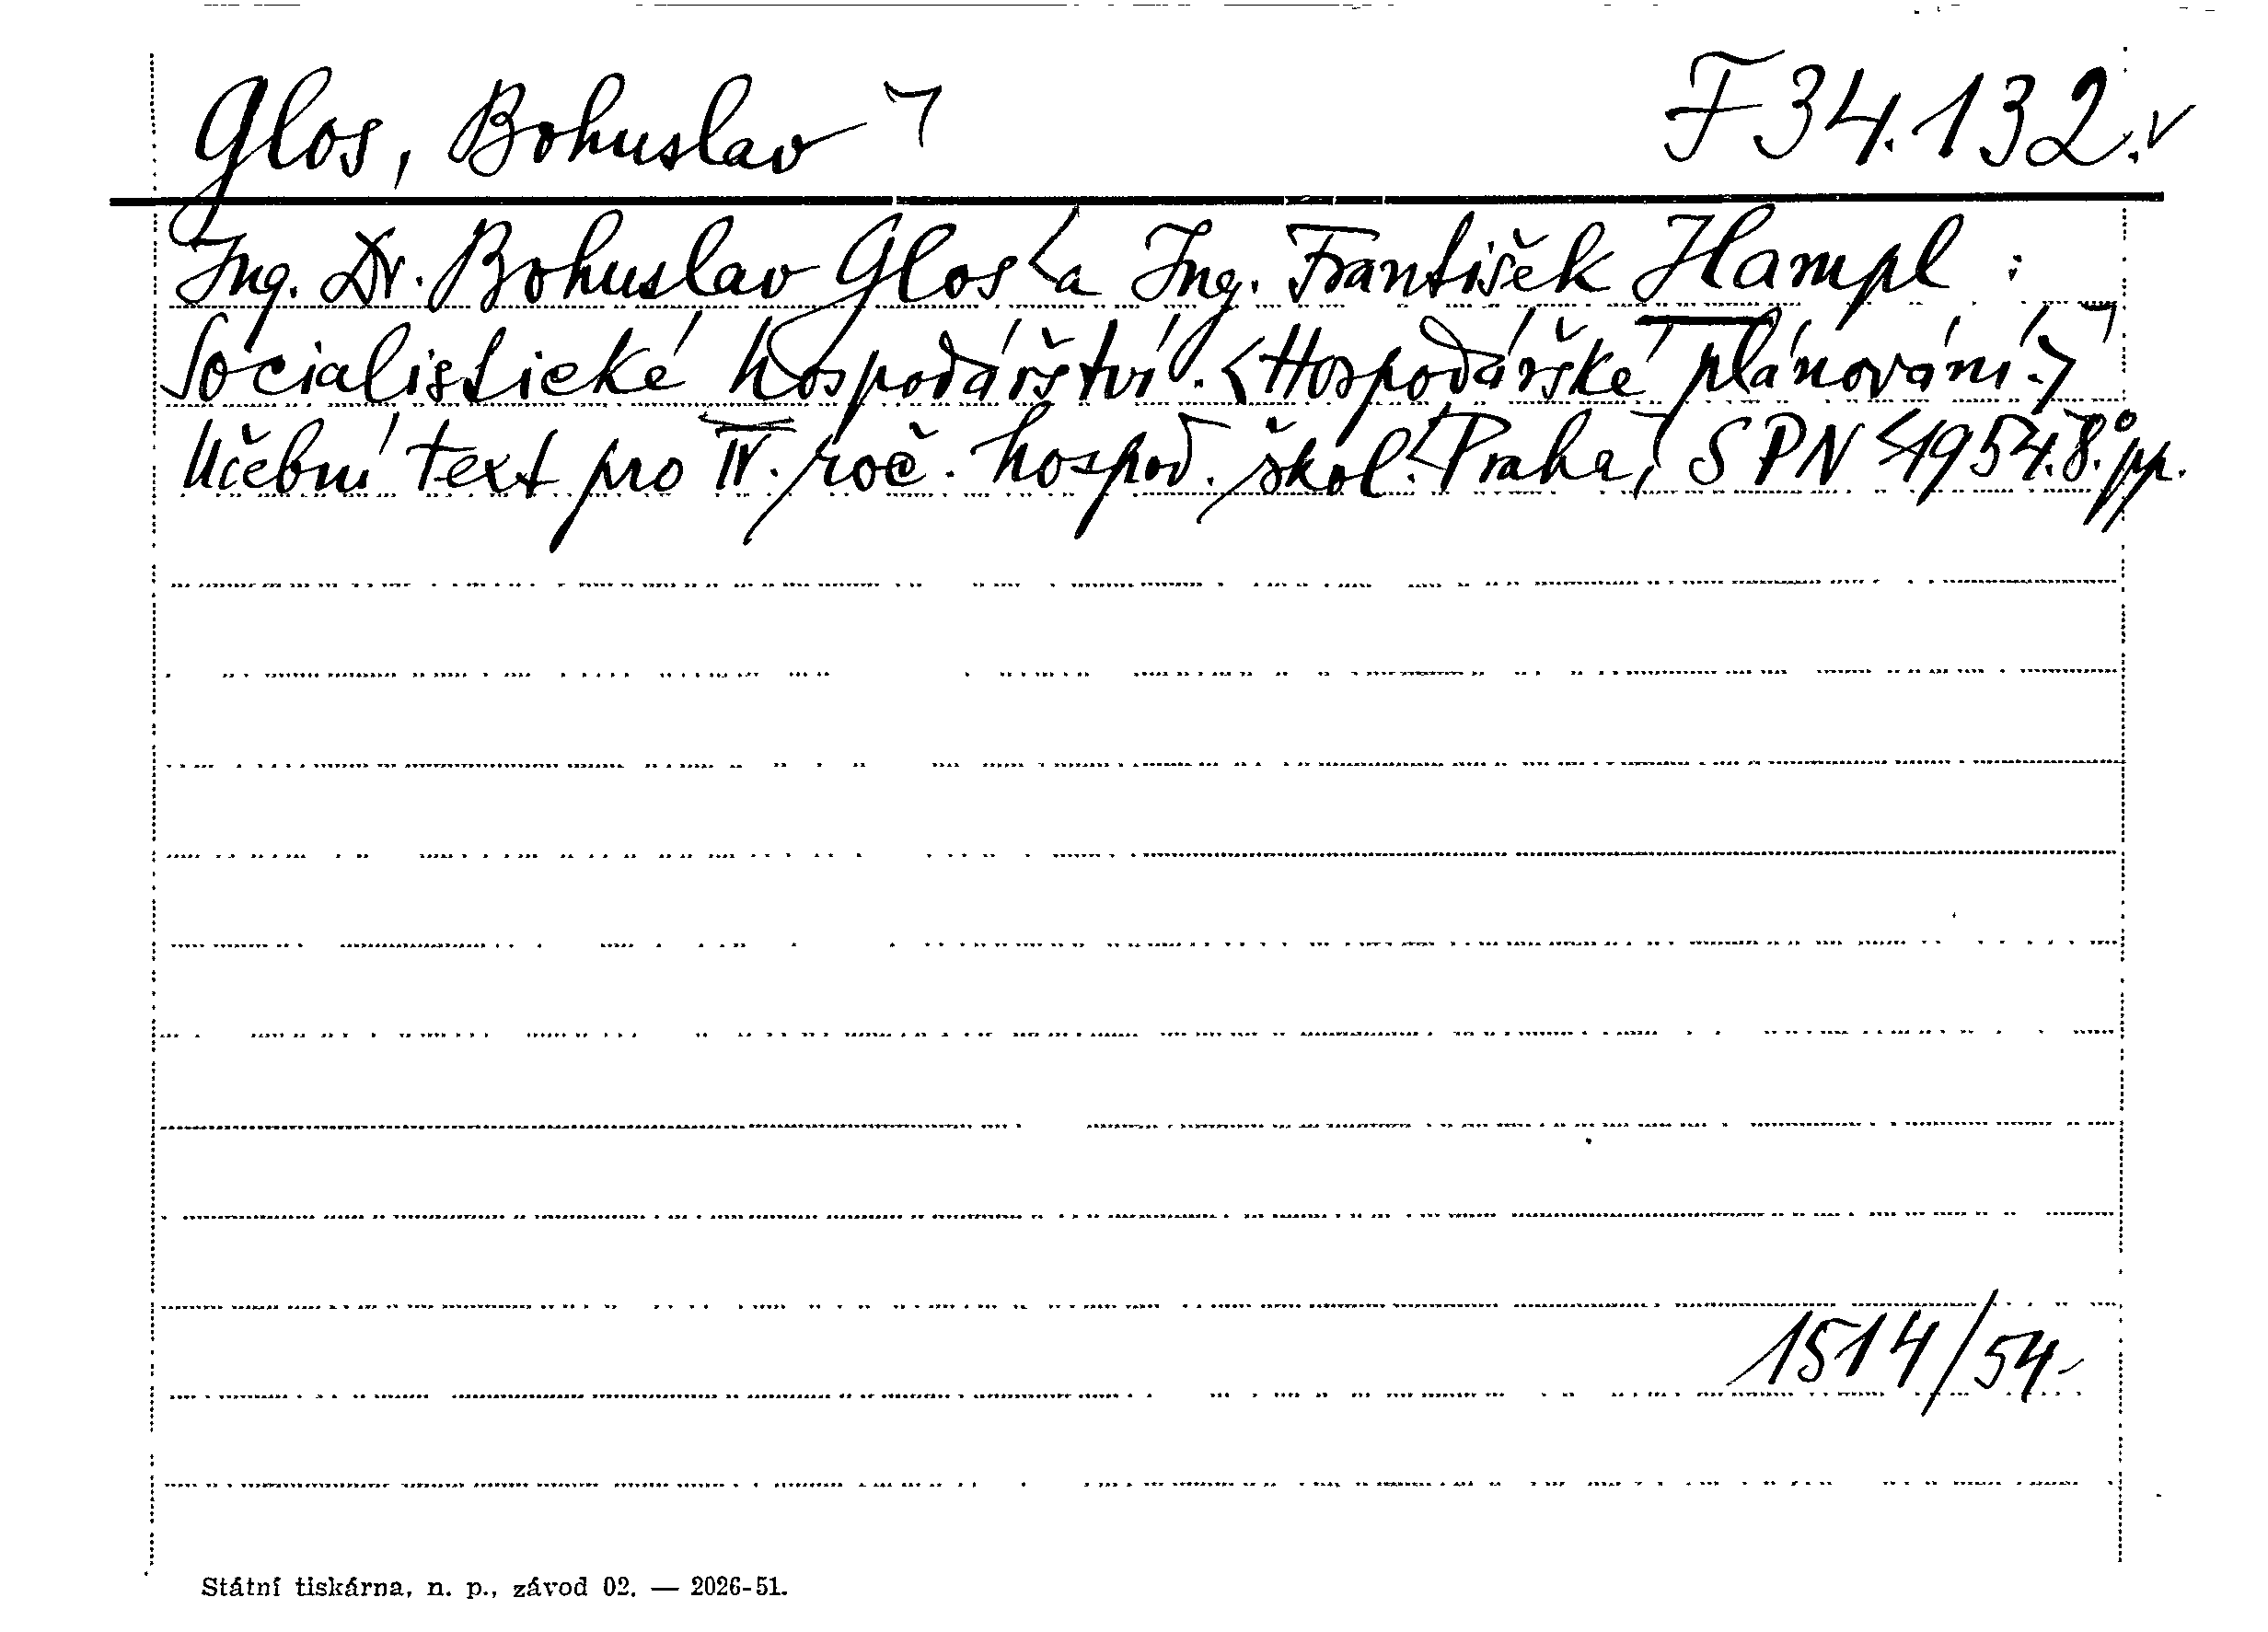 Glos, Bohuslav ┐ F 34.132.v
Ing. Dr. Bohuslav Glos < a Ing. František Hampl :
Socialistické hospodářství. <Hospodářské plánování.> ┐
Učební text pro IV. roč. hospod. škol. <Praha, SPN <1954. 8°. pp.
1514/54-
Státní tiskárna, n. p., závod 02. — 2026-51.